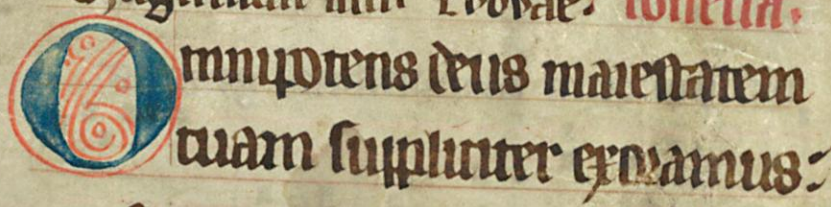 Omnipotens deus maiestatem
tuam suppliciter exoramus: